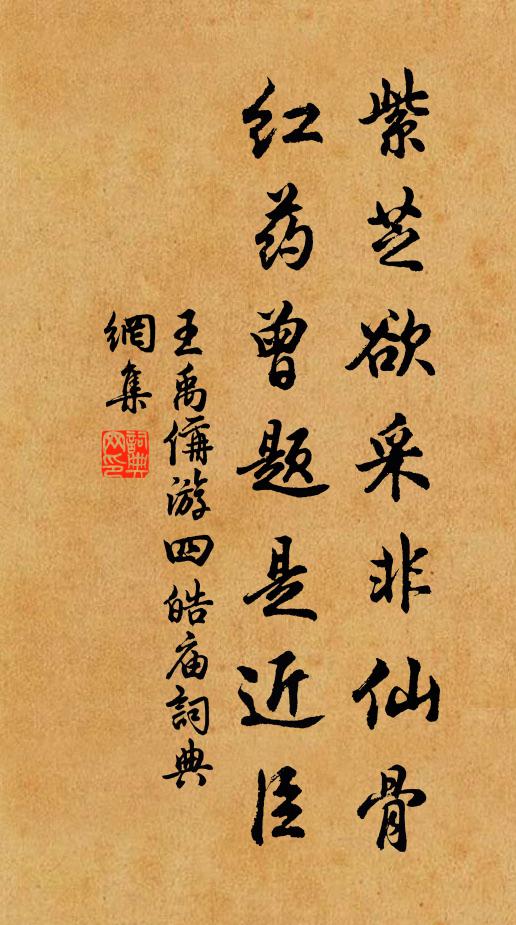 紫芝欲采非仙骨
红药曾题是近臣
王禹偁游四皓庙詞典
網集
詞典網印